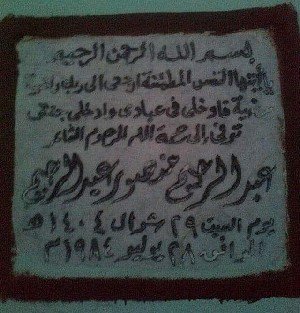 بسم الله الرحمن الرحيم
يأيتها النفس المطمئنة ارجعى الى ربك راضية
مرضية فادخلى فى عبادى وادخلى جنتى
توفى الى رحمة الله المرحوم الشاعر
عبد الرحيم منصور عبد الرحيم
يوم السبت ٢٩ شوال ١٤٠٤ هـ
الموافق ٢٨ يوليو ١٩٨٤ م